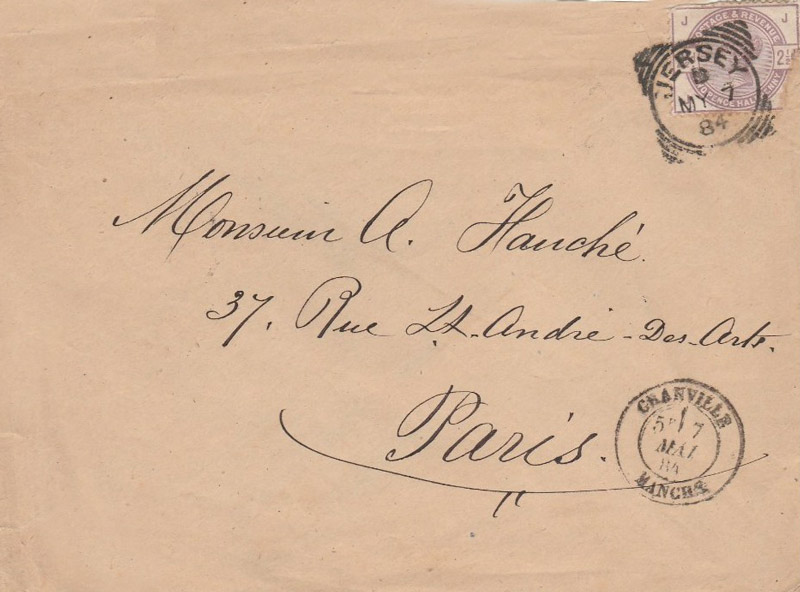 J J
POSTAGE & REVENUE
2½
JERSEY
B
MY 7
84
Monsieur A. Hauché.
37. Rue St. André-Des-Arts.
Paris.
GRANVILLE
5E 7
MAI
84
MANCHE